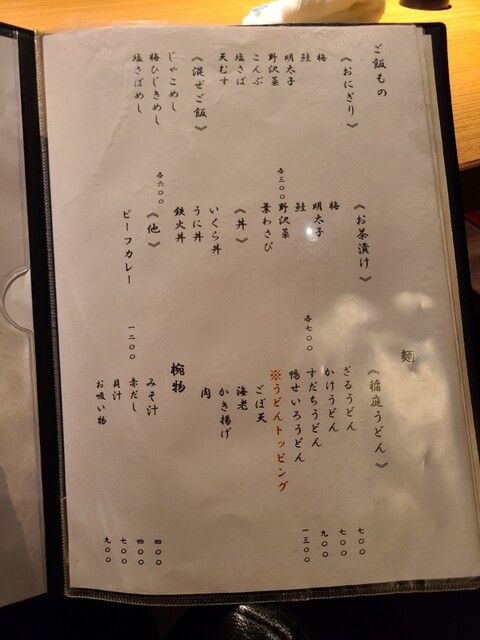 ご飯もの
《おにぎり》
梅
鮭
明太子
野沢菜
こんぶ
塩さば
天むす
各三〇〇
《混ぜご飯》
じゃこめし
梅ひじきめし
塩さばめし
各六〇〇
《お茶漬け》
梅
明太子
鮭
野沢菜
葉わさび
各七〇〇
《丼》
いくら丼
うに丼
鉄火丼
《他》
ビーフカレー
一二〇〇
麺
《稲庭うどん》
ざるうどん
七〇〇
かけうどん
七〇〇
すだちうどん
九〇〇
鴨せいろうどん
一三〇〇
※うどんトッピング
ごぼ天
海老
かき揚げ
肉
椀物
みそ汁
四〇〇
赤だし
四〇〇
貝汁
七〇〇
お吸い物
九〇〇